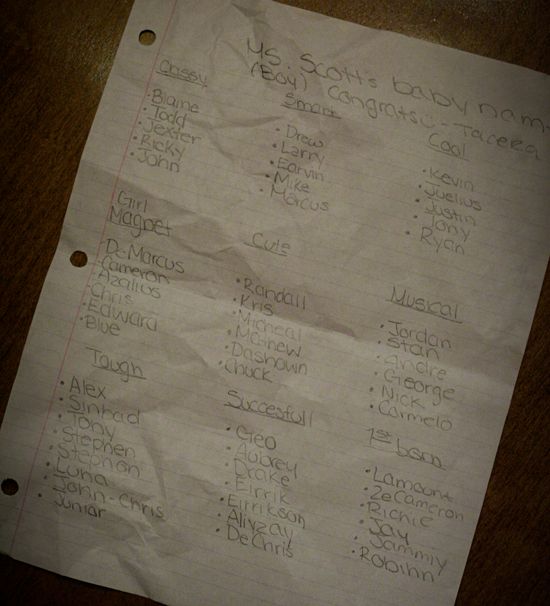 Ms. Scott's baby nam
(Boy) Congrats - Tacera
Classy
• Blaine
• Todd
• Jexter
• Ricky
• John
Smart
• Drew
• Larry
• Earvin
• Mike
• Marcus
Cool
• Kevin
• Juelius
• Justin
• Tony
• Ryan
Girl
Magnet
• DeMarcus
• Cameron
• Azalius
• Chris
• Edward
• Blue
Cute
• Randall
• Kris
• Micheal
• Mathew
• Dashawn
• Chuck
Musical
• Jordan
• Stan
• Andre
• George
• Nick
• Carmelo
Tough
• Alex
• Sinbad
• Tony
• Stephen
• Stephon
• Luna
• John-Chris
• Junior
Succesfull
• Cleo
• Aubrey
• Drake
• Eirrik
• Eirrikson
• Aliyzay
• DeChris
1st born
• Lamount
• ZeCameron
• Richie
• Jay
• Jammiy
• Robihn